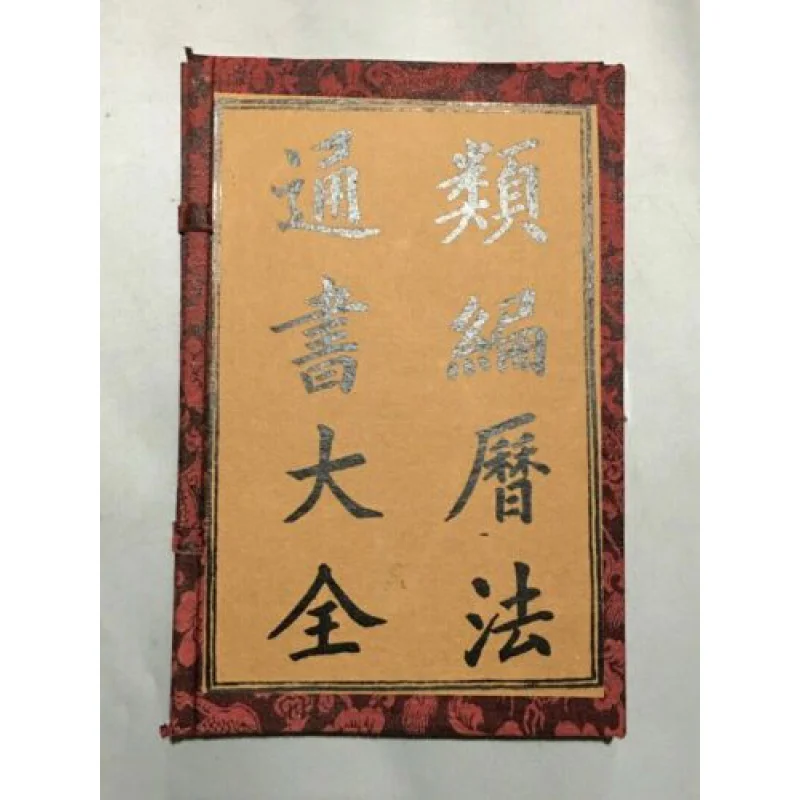 類編曆法
通書大全